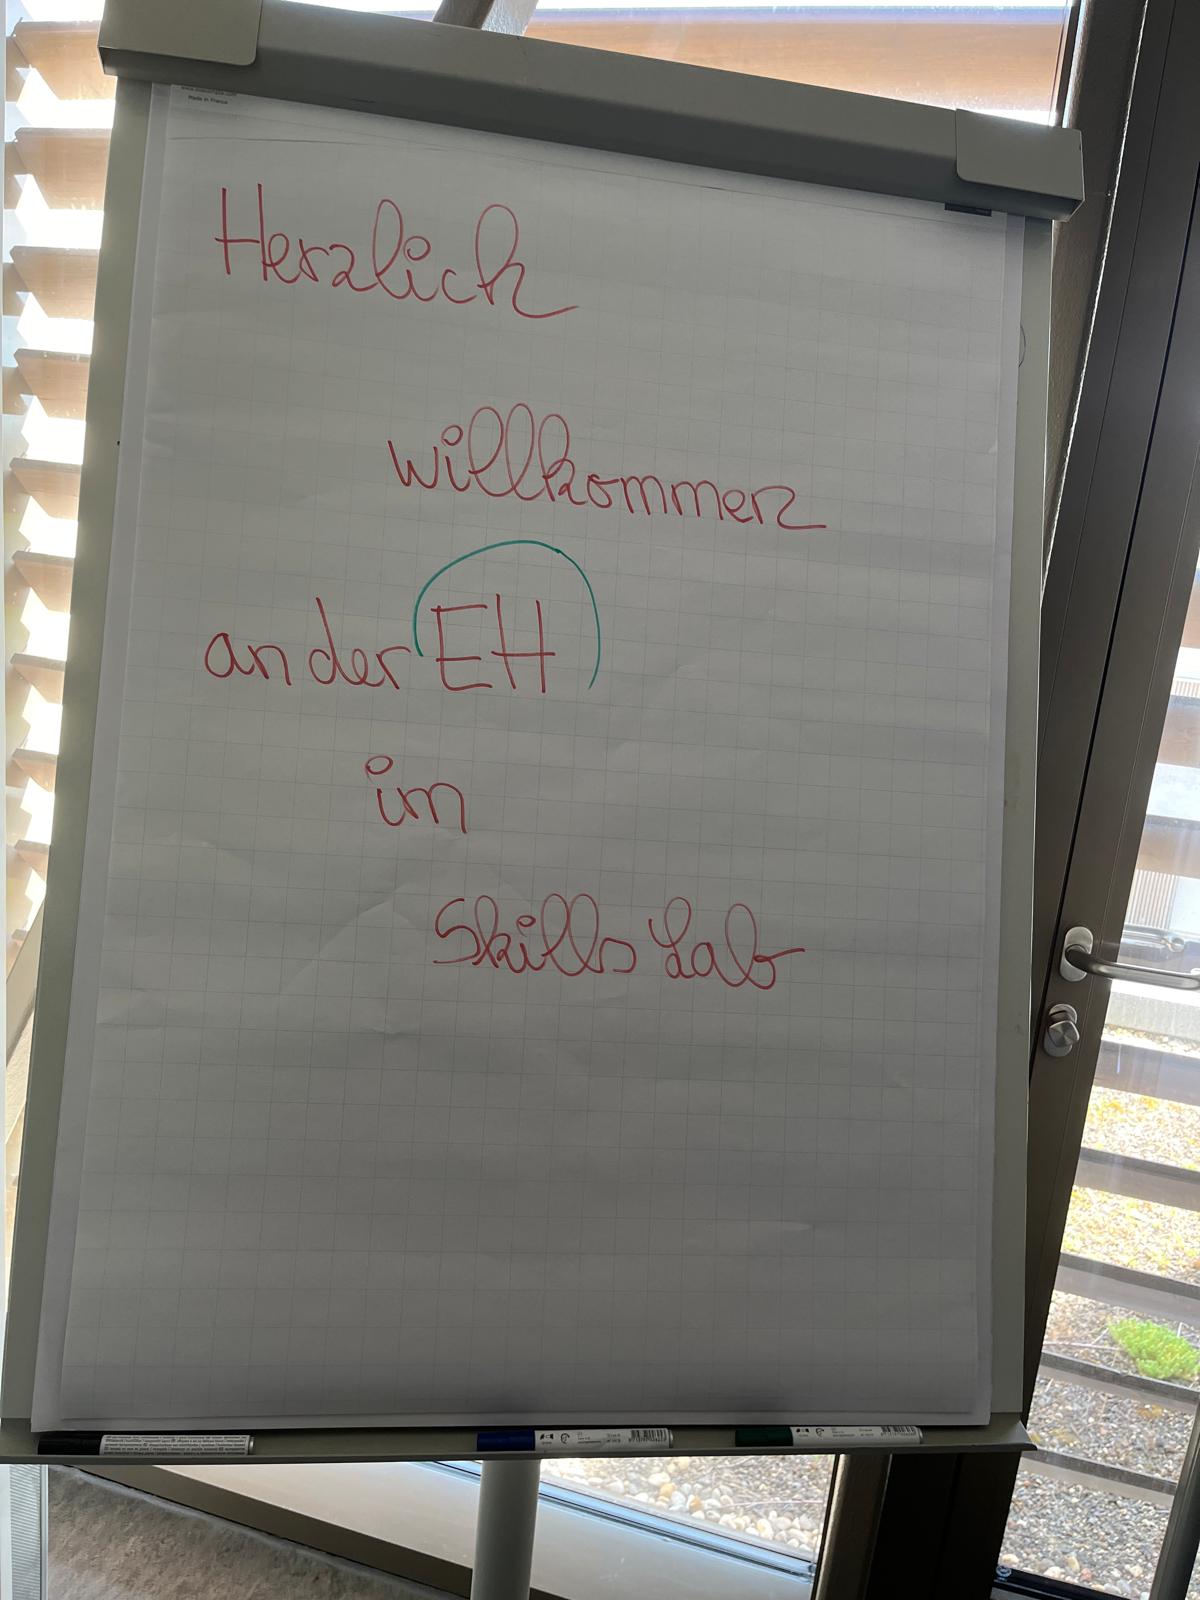 Made in France
Herzlich
willkommen
an der EH
im
Skills Lab